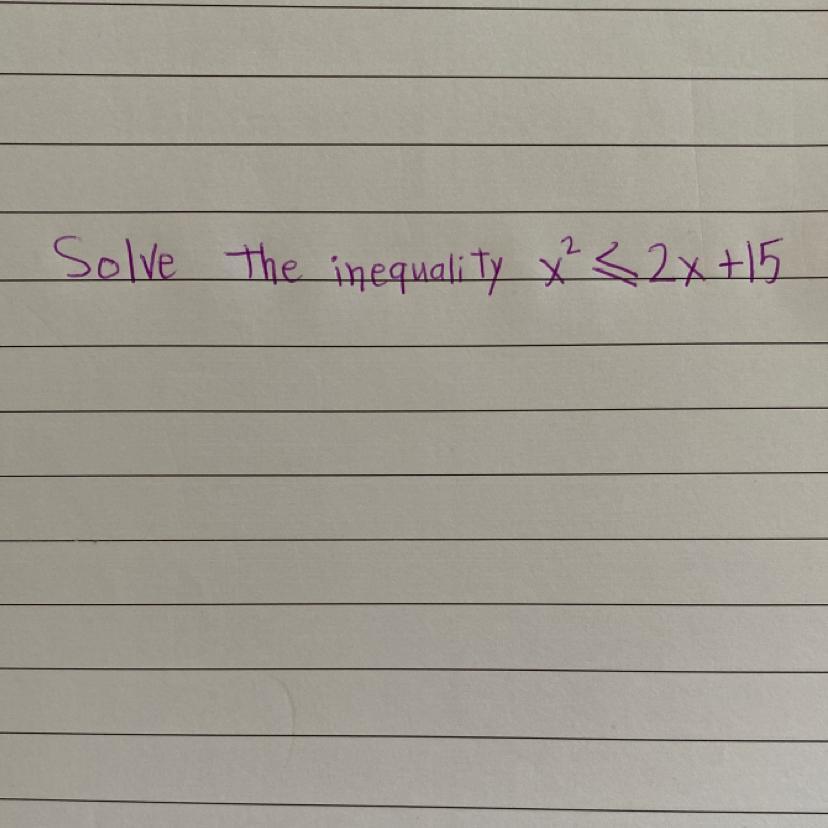 Solve the inequality x² ⩽ 2x + 15